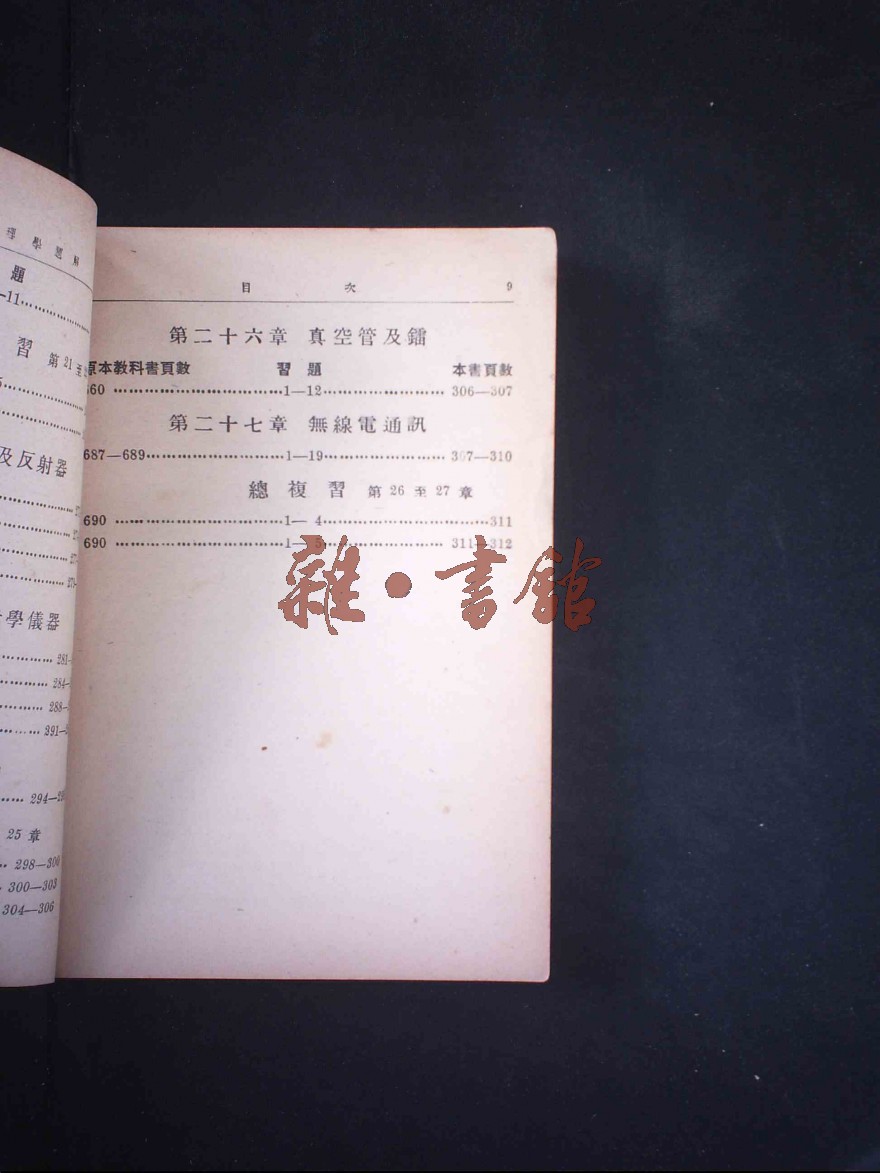 理學題解
題
—11
習 第21至
及反射器
學儀器
281
284
288
291
294—
25章
298—300
300—303
304—306
目 次 9
第二十六章 真空管及鐳
原本教科書頁數 習題 本書頁數
660 1—12 306—307
第二十七章 無線電通訊
687—689 1—19 307—310
總複習 第26至27章
690 1—4 311
690 1—5 311—312
雜·書館